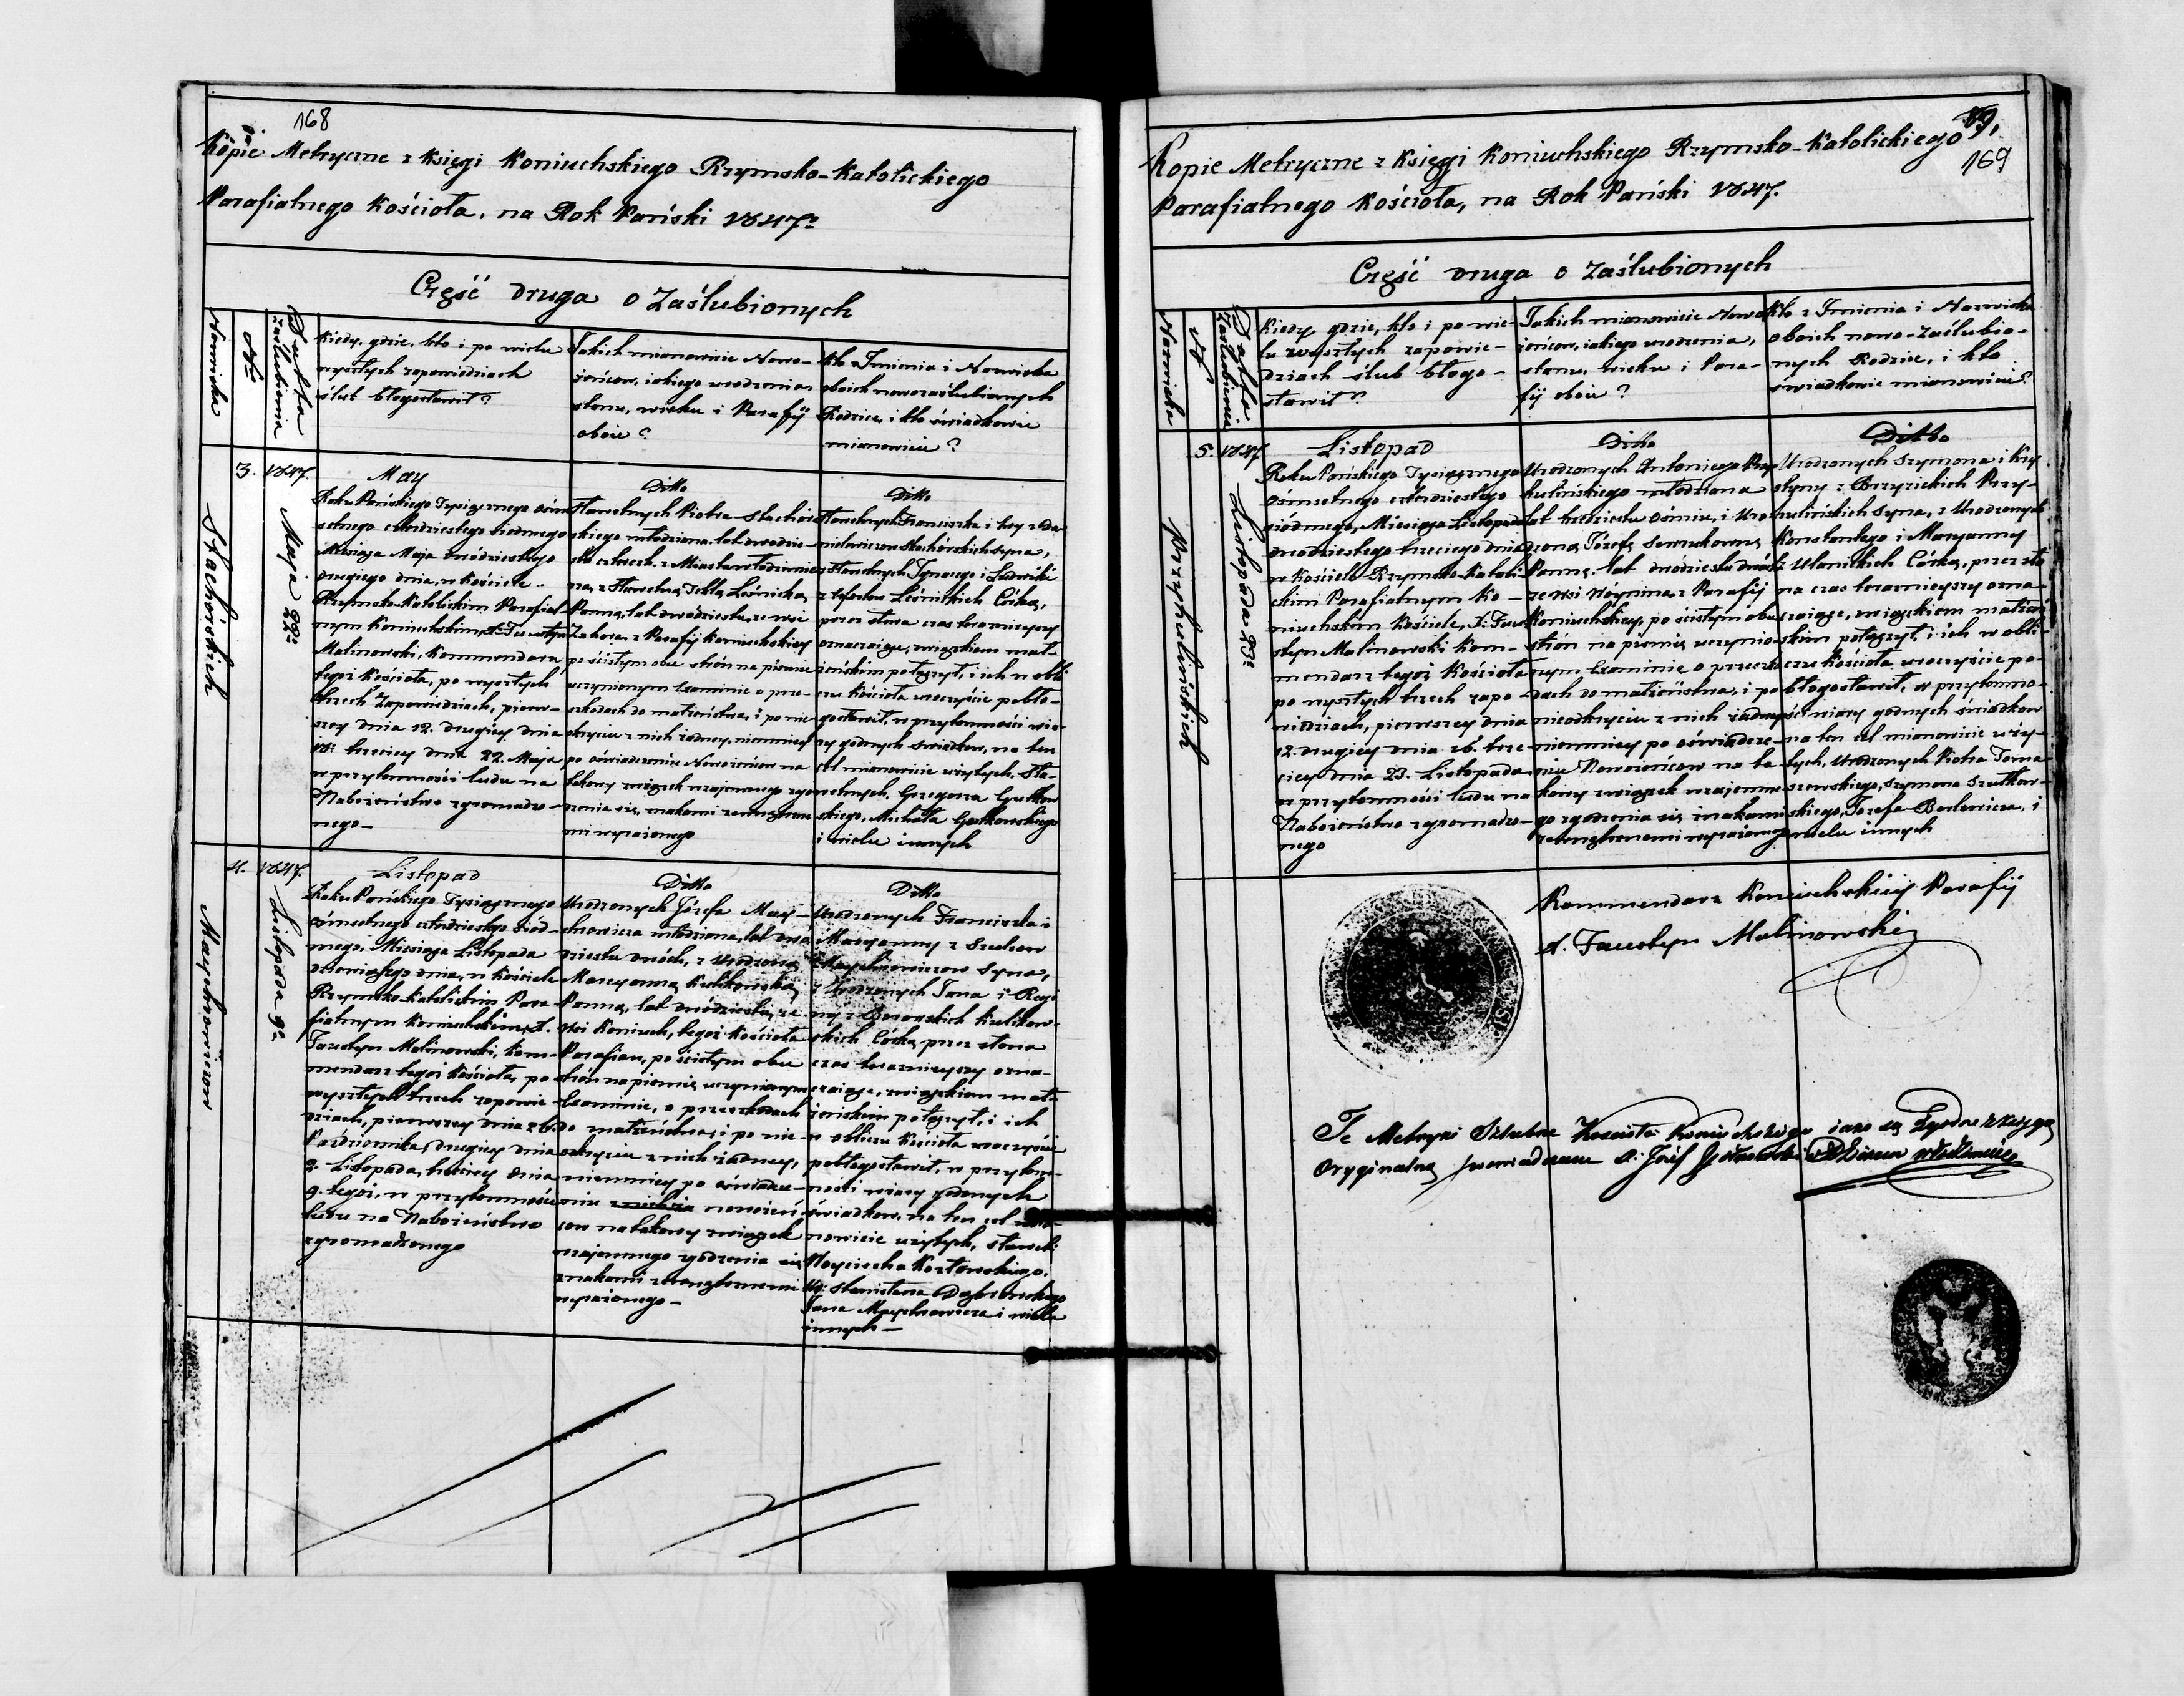 168
Kopie Metryczne z Księgi Koniuchskiego Rzymsko-Katolickiego
Parafialnego Kościoła, na Rok Pański 1847.
Część druga o Zaślubionych
Nazwiska
No
Datta zaślubienia
Kiedy, gdzie, kto i po wielu
wyszłych zapowiedziach
ślub błogosławił?
Jakich mianowicie Nowo-
żeńcow, iakiego urodzenia,
stanu, wieku i Parafij
oboie?
Kto z Imienia i Nazwiska
oboich nowozaślubionych
Rodzice, i kto świadkowie
mianowicie?
Stachórskich
3.
1847. Maja 22.
May
Roku Pańskiego Tysiącznego ośm
setnego czterdziestego siedmego
Miesiąca Maja dwódziestego
drugiego dnia, w Kościele
Rzymsko-Katolickim Parafial-
nym Koniuchskim, X. Faustyn
Malinowski, Kommendarz
tegoż Kościoła, po wyszłych
trzech Zapowiedziach, pierw-
szey dnia 12. drugiey dnia
18. trzeciey dnia 22. Maja
w przytomności ludu na
Nabożeństwo zgromadzo-
nego
Ditto
Sławetnych Piotra Stachór-
skiego młodziana lat dwodzie-
stu czterech, z Miasta Włodzimie-
rza, z Sławetną Teklą Leśnicką,
Panną, lat dwódziestu, ze wsi
Zahora, z Parafij Koniuchskiey
po ścisłym obu strón na piśmie
uczynionym Examinie o prze-
szkodach do małżeństwa, i po nie
okryciu z nich żadney, niemniey
po oświadczeniu Nowożeńcow na
takowy związek wzajemnego zgo-
dzenia się, znakami zewnętrzne-
mi wyrażonego
Ditto
Sławetnych Franciszka i Ewy z Da-
nielewiczow Stachórskich syna,
z Sławetnych Ignacego i Ludwiki
Leśnickich Córką,
przez słowa czas teraznieyszy
oznaczaiące, związkiem mał-
żeńskim połączył, i ich w obli-
czu Kościoła uroczyście pobło-
gosławił, w przytomności wia-
ry godnych świadkow, na ten
cel mianowicie użytych, Sła-
wetnych, Grzegorza
Michała
i wielu innych
Maychrowiczow
4.
1847. Listopada 9.
Listopad
Roku Pańskiego Tysiącznego
ósmsetnego czterdziestego siód-
mego, Miesiąca Listopada
dziewiątego dnia, w Kościele
Rzymsko-Katolickim Para-
fialnym Koniuchskim, X.
Faustyn Malinowski, Kom-
mendarz tegoż Kościoła, po
wyszłych trzech zapowie-
dziach, pierwszey dnia 26.
Października, drugiey dnia
2. Listopada, trzeciey dnia
9. tegoż, w przytomności
ludu na Nabożeństwo
zgromadzonego
Ditto
Urodzonych Józefa May-
chrowicza młodziana, lat dwa
dziestu dwóch, z Urodzoną
Maryanną Kulikowską,
Panną, lat dwódziestu, ze
wsi Koniuch, tegoż Kościoła
Parafian, po ścisłym obu
strón na piśmie uczynionym
Examinie, o przeszkodach
do małżeństwa, i po nie-
odkryciu z nich żadney,
niemniey po oświadcze-
niu nowożeń
cow na takowy związek
wzajemnego zgodzenia się,
znakami zewnętrznemi
wyrażonego
Ditto
Urodzonych Franciszka i
Maryanny z
Maychrowiczow Syna,
z Urodzonych Jana i Regi
ny z Kulikow-
skich Córką, przez słowa
czas teraznieyszy ozna-
czaiące, związkiem mał-
żeńskim połączył, i ich
w obliczu Kościoła uroczyście
pobłogosławił, w przytom-
ności wiary godnych
świadkow, na ten cel mia-
nowicie użytych, sławetn:
Woyciecha Kozłowskiego,
Ur: Stanisława Dąbrowskiego
Jana Maychrowicza i wielu
innych
89.
169
Kopie Metryczne z Księgi Koniuchskiego Rzymsko-Katolickiego
Parafialnego Kościoła, na Rok Pański 1847.
Część druga o Zaślubionych
Nazwiska
N
Datta Zaślubienia
Kiedy, gdzie, kto i po wie-
lu wyszłych zapowie-
dziach ślub błogo-
sławił?
Jakich mianowicie Nowo
żeńcow, iakiego urodzenia,
stanu, wieku i Para-
fij oboie?
Kto z Imienia i Nazwiska
oboich nowo-zaślubio-
nych Rodzice, i kto
świadkowie mianowicie?
Przykulińskich
5.
1847. Listopada 23.
Listopad
Roku Pańskiego Tysiącznego
Ósmsetnego czterdziestego
siódmego, Miesiąca Listopada
dwódziestego trzeciego dnia
w Kościele Rzymsko-Katoli-
ckim Parafialnym Ko-
niuchskim Kościele, X. Fau-
styn Malinowski Kom-
mendarz tegoż Kościoła
po wyszłych trzech zapo-
wiedziach, pierwszey dnia
12. drugiey dnia 16. trze-
ciey dnia 23. Listopada
w przytomności ludu na
Nabożeństwo zgromadzo-
nego
Ditto
Urodzonych Antoniego Przy
kulińskiego młodziana
lat trzdziestu ośmiu, i Uro-
dzoną Józefą
Panną, lat dwódziestu dwóch
ze wsi Woynina, z Parafij
Koniuchskiey, po ścisłym obu
strón na piśmie uczynio-
nym Examinie o przeszko
dach do małżeństwa, i po
nieodkryciu z nich żadney
niemniey po oświadcze-
niu Nowożeńcow na ta-
kowy związek wzajemne-
go zgodzenia się znakami
zewnętrznemi wyrażonego
Ditto
Urodzonych Szymona i Kry
styny z Brzyzickich Przy-
kulińskich Syna, z Urodzonych
Konstantego i Maryanny
z Ulanickich Córką, przez sło
na czas teraznieyszy ozna-
czaiące, związkiem małżeń
skim połączył, i ich w obli-
czu Kościoła uroczyście po-
błogosławił, w przytomno-
ści wiary godnych świadkow
na ten cel mianowicie uży-
tych, Urodzonych Piotra Toma-
szewskiego, Szymona Szutkow-
skiego, Jozefa Berlewicza, i
wielu innych
Kommendarz Koniuchskiey Parafij
X. Faustyn Malinowski
Te Metryki Szlubne Kościoła Koniuchskiego iako są Zgodne z Xięgą
Oryginalną poswiadczam X: Józef Dziekan Włodzimirs